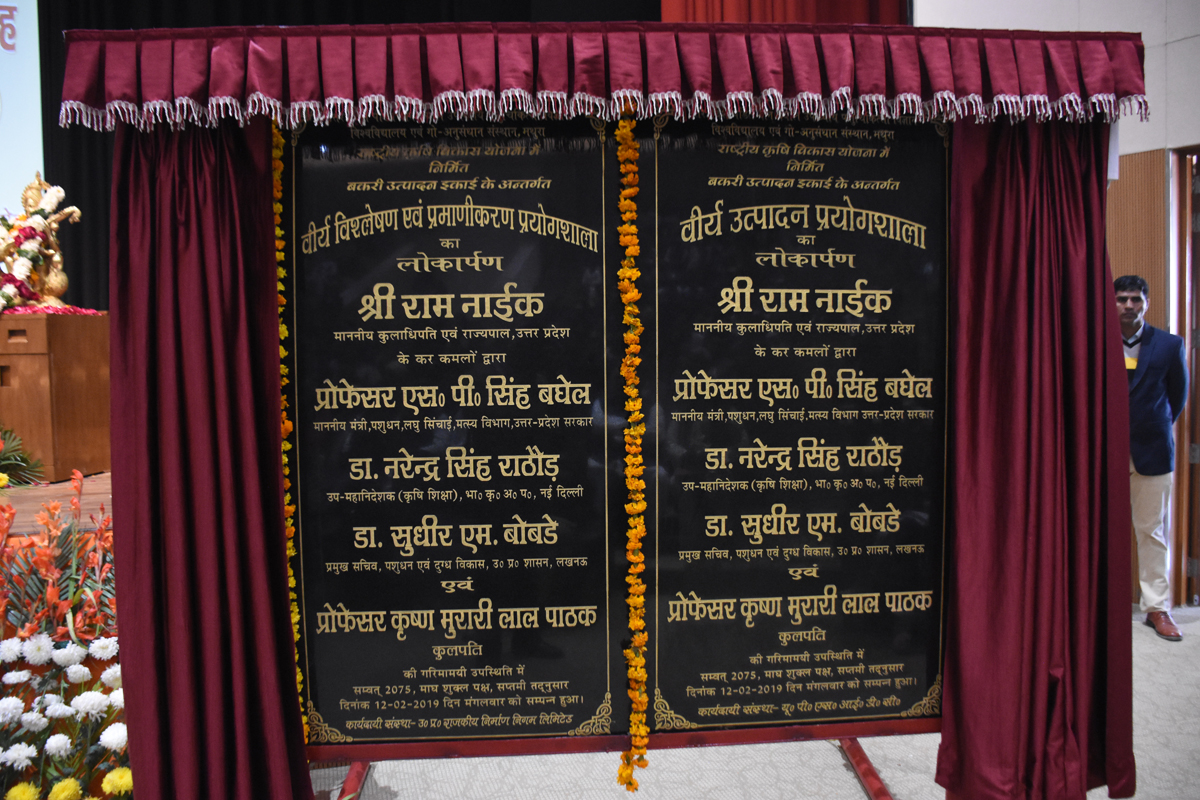 विश्वविद्यालय एवं गो-अनुसंधान संस्थान, मथुरा
राष्ट्रीय कृषि विकास योजना में
निर्मित
बकरी उत्पादन इकाई के अन्तर्गत
वीर्य विश्लेषण एवं प्रमाणीकरण प्रयोगशाला
का
लोकार्पण
श्री राम नाईक
माननीय कुलाधिपति एवं राज्यपाल,उत्तर प्रदेश
के कर कमलों द्वारा
प्रोफेसर एस० पी० सिंह बघेल
माननीय मंत्री,पशुधन,लघु सिंचाई,मत्स्य विभाग,उत्तर-प्रदेश सरकार
डा. नरेन्द्र सिंह राठौड़
उप-महानिदेशक (कृषि शिक्षा), भा० कृ० अ० प०, नई दिल्ली
डा. सुधीर एम. बोबडे
प्रमुख सचिव, पशुधन एवं दुग्ध विकास, उ० प्र० शासन, लखनऊ
एवं
प्रोफेसर कृष्ण मुरारी लाल पाठक
कुलपति
की गरिमामयी उपस्थिति में
सम्वत् 2075, माघ शुक्ल पक्ष, सप्तमी तद्नुसार
दिनांक 12-02-2019 दिन मंगलवार को सम्पन्न हुआ।
कार्यदायी संस्था- उ० प्र० राजकीय निर्माण निगम लिमिटेड
विश्वविद्यालय एवं गो-अनुसंधान संस्थान, मथुरा
राष्ट्रीय कृषि विकास योजना में
निर्मित
बकरी उत्पादन इकाई के अन्तर्गत
वीर्य उत्पादन प्रयोगशाला
का
लोकार्पण
श्री राम नाईक
माननीय कुलाधिपति एवं राज्यपाल,उत्तर प्रदेश
के कर कमलों द्वारा
प्रोफेसर एस० पी० सिंह बघेल
माननीय मंत्री,पशुधन,लघु सिंचाई,मत्स्य विभाग उत्तर-प्रदेश सरकार
डा. नरेन्द्र सिंह राठौड़
उप-महानिदेशक (कृषि शिक्षा), भा० कृ० अ० प०, नई दिल्ली
डा. सुधीर एम. बोबडे
प्रमुख सचिव, पशुधन एवं दुग्ध विकास, उ० प्र० शासन, लखनऊ
एवं
प्रोफेसर कृष्ण मुरारी लाल पाठक
कुलपति
की गरिमामयी उपस्थिति में
सम्वत् 2075, माघ शुक्ल पक्ष, सप्तमी तद्नुसार
दिनांक 12-02-2019 दिन मंगलवार को सम्पन्न हुआ।
कार्यदायी संस्था- यू० पी० एस० आई० डी० सी०